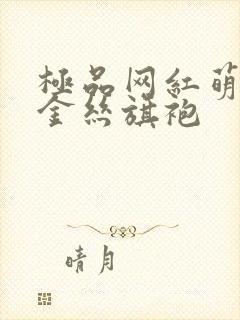 極品网紅萌
金丝旗袍
晴月